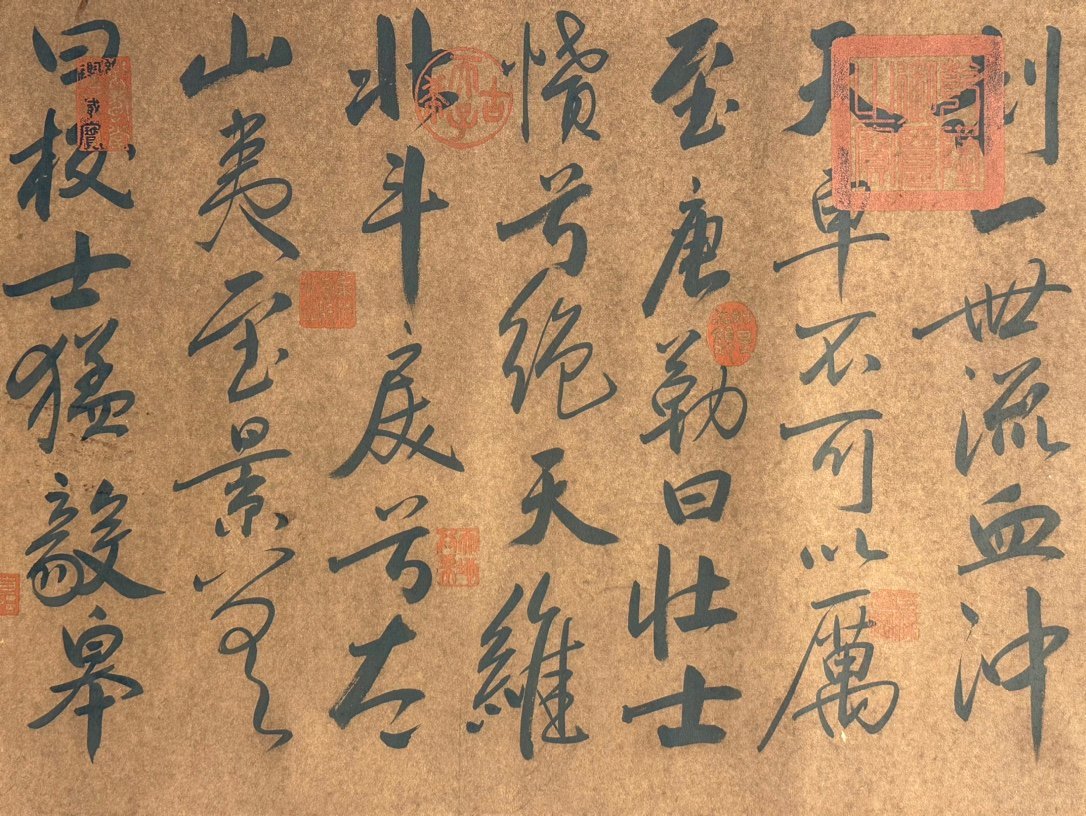 剥一世流血沖
天車不可以厲
至唐勒曰壯士
憤兮絕天維
北斗戾兮太
山夷至景差
曰校士猛毅皋